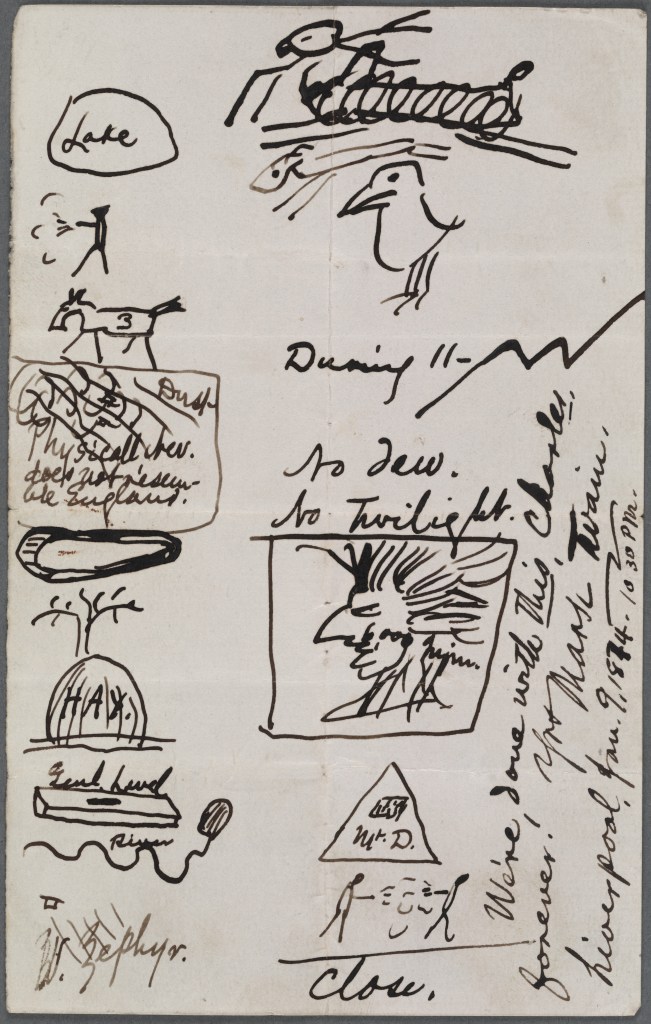 Lake
3
Dusk
Physically Nev.
does not resem-
ble England.
HAY.
Level
River
W. Zephyr.
During 11-
No dew.
No Twilight.
boo
him.
Mt. D.
Close.
We're done with this, Charles,
forever! Yrs Mark Twain.
Liverpool, Jan. 9, 1874. 10 30 P.M.